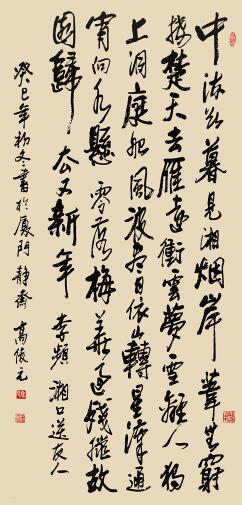 中流欲暮見湘烟岸葦無窮
接楚天去雁遠衝雲夢雪離人獨
上洞庭船風波盡日依山轉星漢通
宵向水懸零落梅華過殘臘故
園歸去又新年 李頻 湘口送友人
癸巳年初冬書於廈門靜齋 高俊元